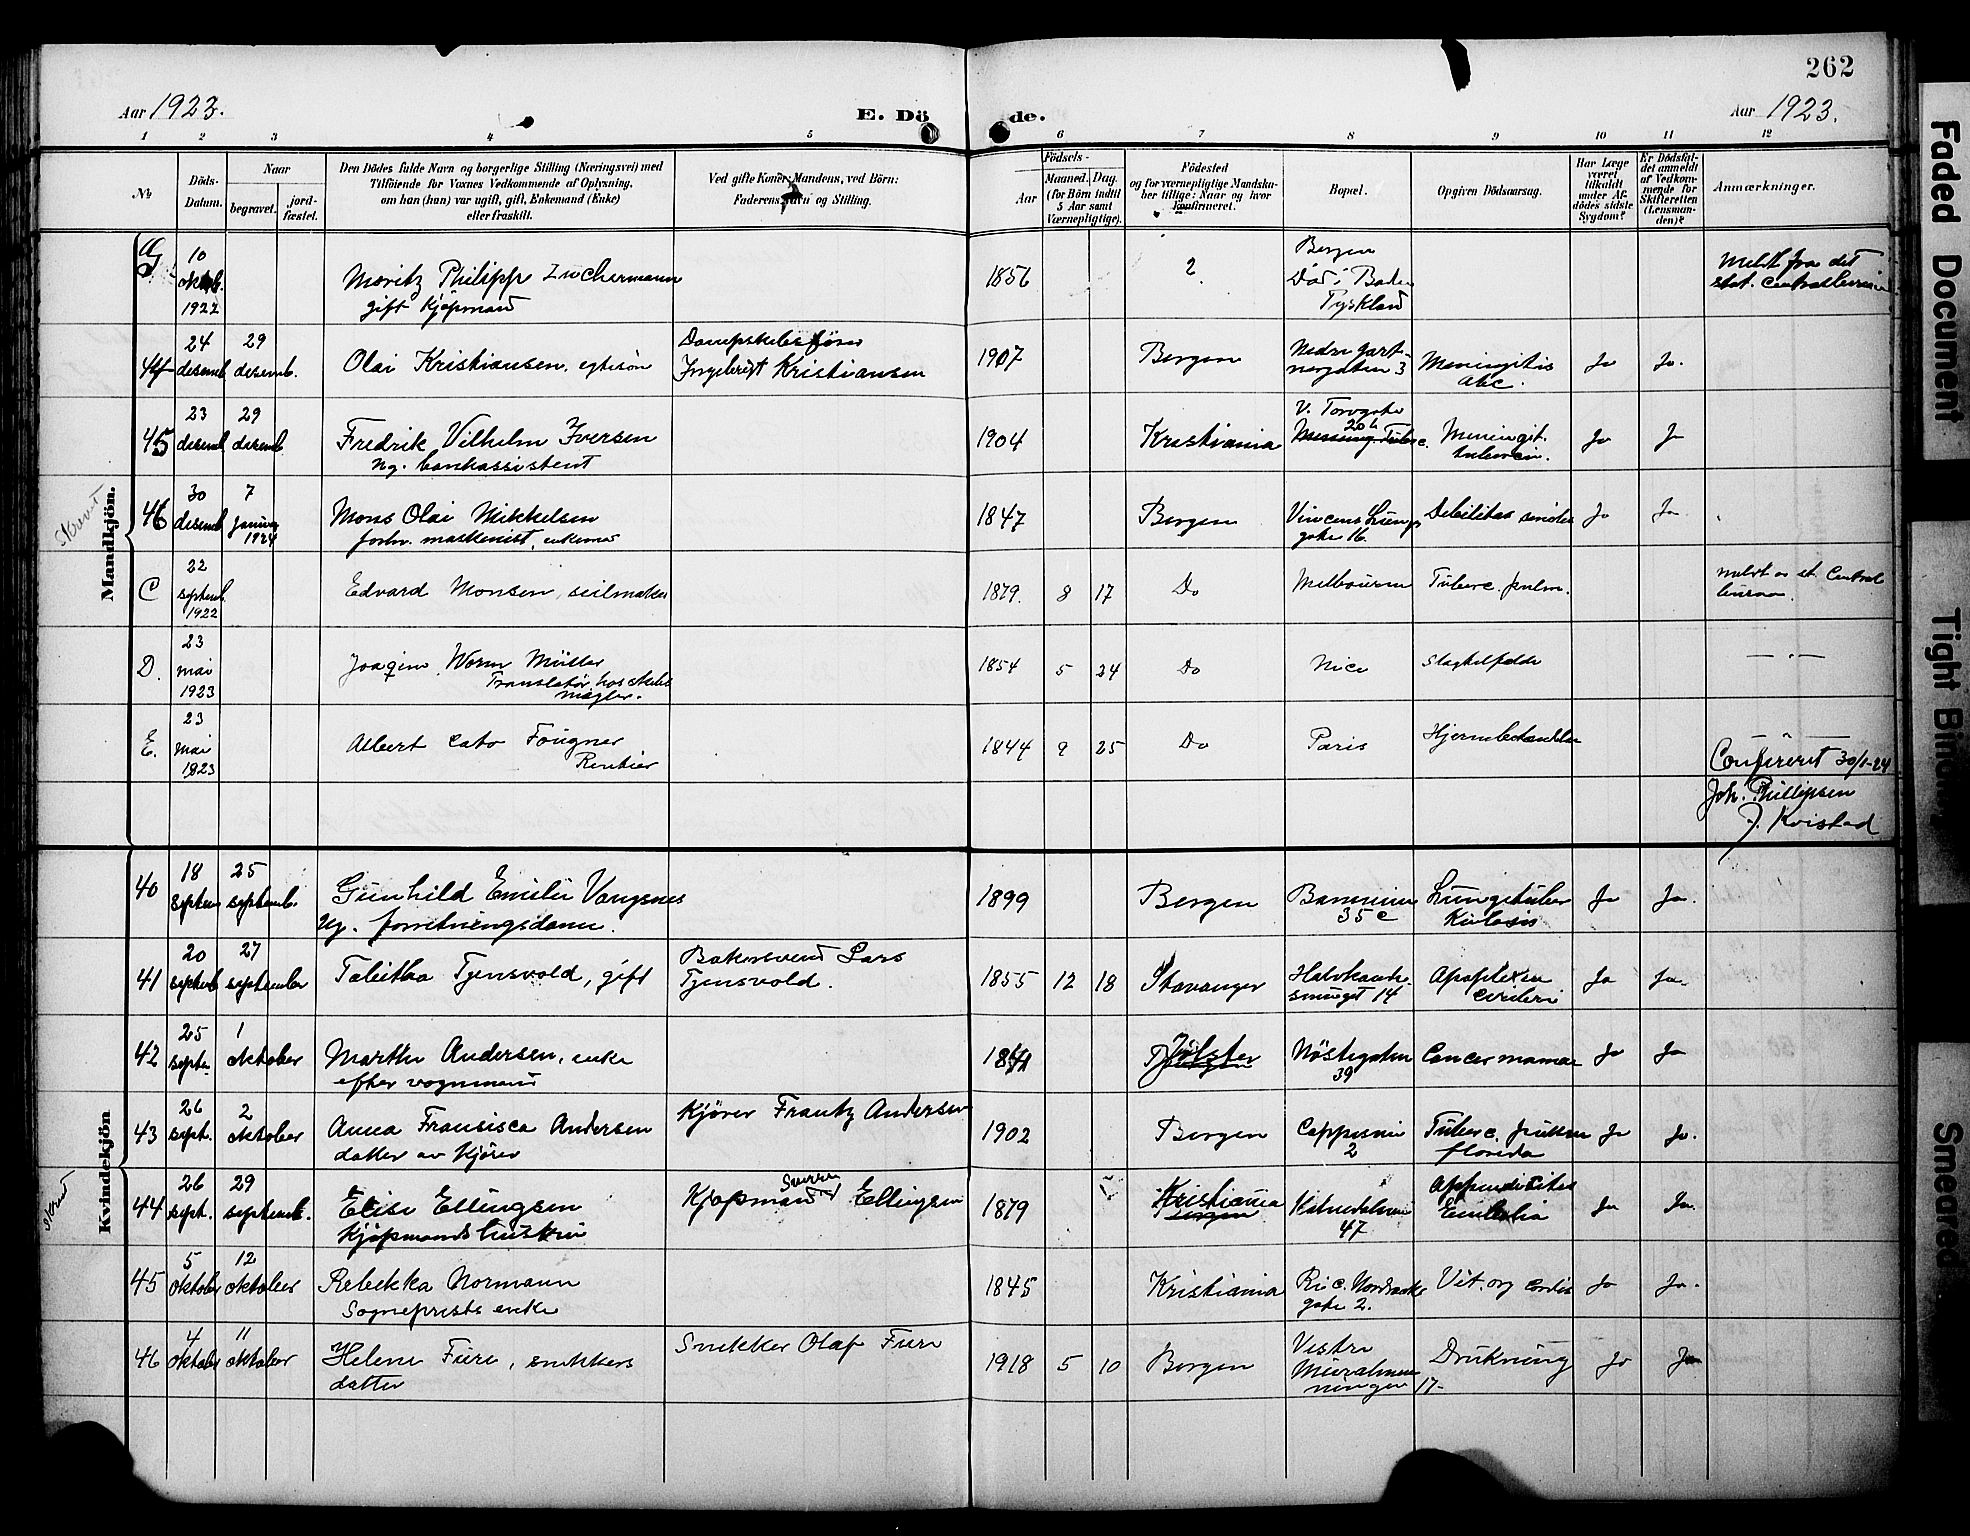 262
Aar 1923.
E. Dö de.
Aar 1923.
1 2 3 4 5 6 7 8 9 10 11 12
No
Döds-
Datum.
Naar
begravet.
jord-
fæstet.
Den Dödes fulde Navn og borgerlige Stilling (Næringsvei) med
Tilföiende for Voxnes Vedkommende af Oplysning,
om han (hun) var ugift, gift, Enkemand (Enke)
eller fraskilt.
Ved gifte Koner: Mandens, ved Börn:
Faderens Navn og Stilling.
Födsels-
Aar
Maaned. Dag.
(for Börn indtil
5 Aar samt
Værnepligtige).
Födested
og for værnepligtige Mandska-
ber tillige: Naar og hvor
Konfirmeret.
Bopæl.
Opgiven Dödsaarsag.
Har Læge
været
tilkaldt
under Af-
dödes sidste
Sygdom?
Er Dödsfal-
det anmeldt
af Vedkom-
mende for
Skifteretten
(Lensman-
den)?
Anmærkninger.
Mandkjön.
10
oktob.
1922
Moritz Philipp Zuchermann
gift Kjøpmand
1856
?
Bergen
Död i Baden
Tyskland
Meldt fra det
stat. Centralbureau
44
24
desemb.
29
desemb.
Olai Kristiansen, egtesøn
Dampskibsfører
Ingebrigt Kristiansen
1907
Bergen
Nedre Gart-
nergaten 3
Meningitis
abc.
Ja
Ja.
45
23
desemb
29
desemb
Fredrik Vilhelm Iversen
ug. bankassistent
1904
Kristiania
V. Torvgate
20 b
Mening. Tuberc.
Meningit.
tubercu.
Ja
Ja
46
30
desemb
7
januar
1924
Mons Olai Mikkelsen
forhv. maskenist, enkemd
1847
Bergen
Vincens Lungs
gate 16.
Debilitas senilis
Ja
Ja.
C
22
septemb.
1922
Edvard Monsen, seilmaker
1879. 8 17
Do
Melbourne
Tuberc. pulm.
meldt av st. Central
bureau
D.
23
mai
1923
Joaqim Worm Müller
Translatør hos skibs
mægler.
1854 5 24
Do
Nice
Slagtilfælde
— " —
E.
23
mai
1923
Albert Cato Fougner
Rentier
1844 9 25
Do
Paris
Confereret 30/1-24
Joh. Phillipsen
J. Kvistad
Kvindekjön
40
18
septem
25
september
Gunhild Emilie Vangsnes
ug. forretningsdame.
1899
Bergen
35 c
Lungetuber
Ja
Ja.
41
20
septemb
27
september
Tabitha Tjensvold, gift
Bakersvend Lars
Tjensvold.
1855 12 18
Stavanger
Halvkande-
smuget 14
Apoplexia
cerebri
Ja
Ja.
42
25
septe.
1
oktober
Marthe Andersen, enke
efter vognmand
1841
Jølster
Bergen
Nöstegaten
39
Cancer mamae
Ja
Ja
43
26
sept.
2
oktober
Anna Fransisca Andersen
datter av Kjører
Kjører Frantz Andersen
1902
Bergen
Cappesmu
2
Tuberc. pulm
florida
Ja
Ja.
44
26
sept.
29
septemb.
Elise Ellingsen
Kjøpmands hustru
Kjøpmand Sverre Ellingsen
1879
Kristiania
Bergen
Kalvedalsvei
47
Appendicites
Embolia
Ja
Ja.
45
5
oktober
12
oktober
Rebekka Normann
Sogneprests enke
1845
Kristiania
Ric. Nordraaks
gate 2.
Vit. org cordis
Ja
Ja.
46
4
oktober
11
oktober
Helene Fure, snekkers
datter
Snekker Olaf Fure
1918 5 10
Bergen
Vestre
Muralmen-
ningen 17-
Drukning
Ja
Ja
Faded Document
Tight Binding
Smeared